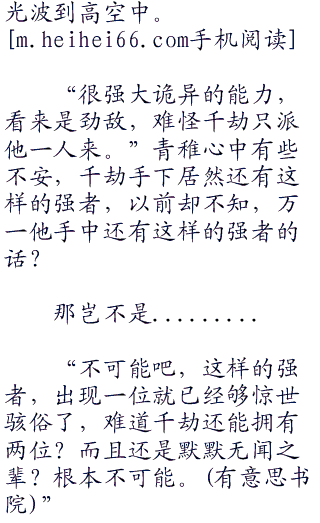 光波到高空中。
[m.heihei66.com手机阅读]
“很强大诡异的能力，
看来是劲敌，难怪千劫只派
他一人来。”青稚心中有些
不安，千劫手下居然还有这
样的强者，以前却不知，万
一他手中还有这样的强者的
话？
那岂不是.........
“不可能吧，这样的强
者，出现一位就已经够惊世
骇俗了，难道千劫还能拥有
两位？而且还是默默无闻之
辈？根本不可能。(有意思书
院)”